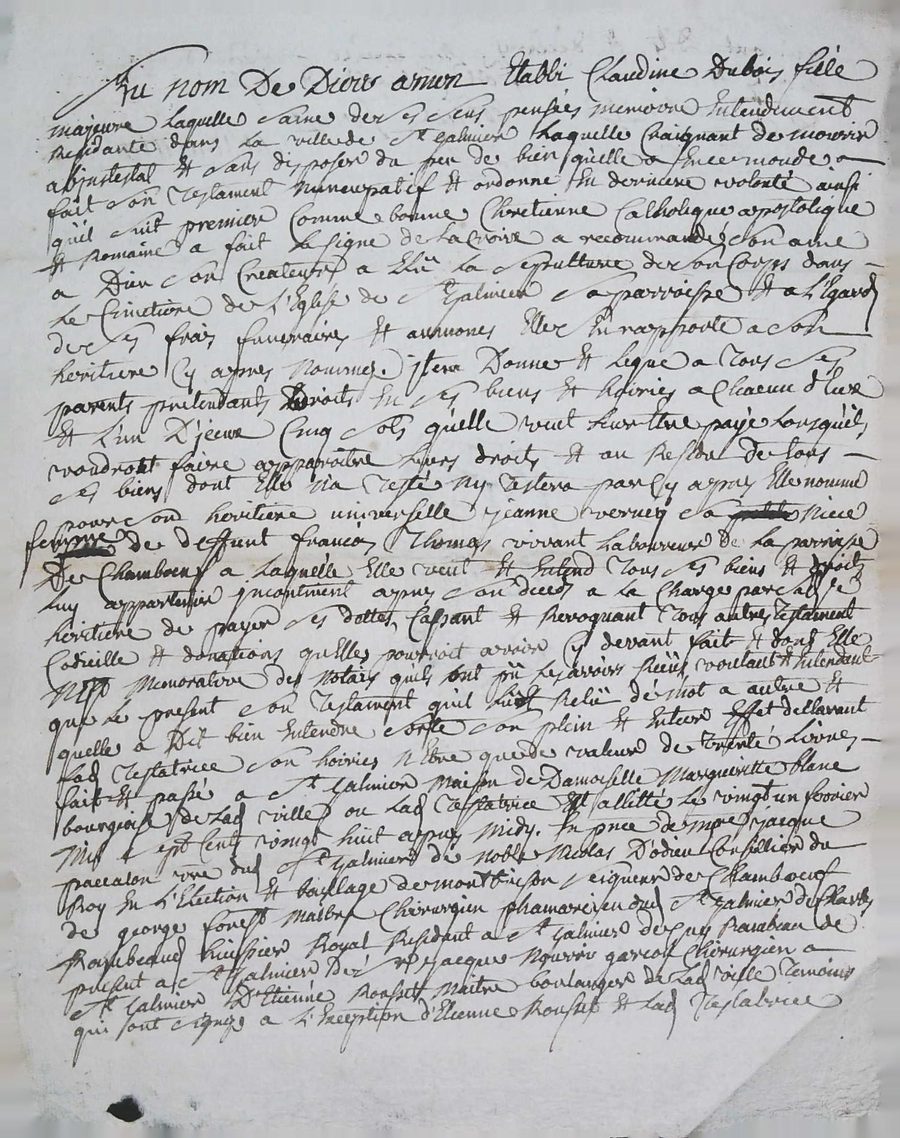 Au nom De Dieu amen Etabli Claudine Dubois fille
majeure laquelle saine de ses sens pensées memoire Entendement
Residante dans La ville de St Galmier Laquelle Craignant de mourir
abjntestat et sans disposer du peu de bien quelle a En ce monde a
fait son Testament nuncupatif et ordonné En derniere volonté ainsi
quil suit premier Comme bonne Chretienne Catholique apostolique
et Romaine a fait Le signe de La Croix a recommandé son ame
a Dieu son Createur a Elu La sepulture de son Corps dans
Le Cimetiere de L'Eglise de St Galmier sa parroisse et a L'Egard
de ses frais funeraires et aumones Elle sen rapporte a son
heritiere Cy apres nommée. jtem Donne et Legue a Tous ses
parents pretendants Droits En ses biens et hoiries a Chacun d'Eux
et L'un D'jceux Cinq sols quelle veut Leur Etre payé Lorsquils
voudront faire apparoitre Leurs droits et au Residu de tous
ses biens dont Elle n'a Testé ny Testera par Cy apres Elle nomme
pour son heritiere universelle jeanne verney sa niece
femme de deffunt francois Thomas vivant Laboureur de La parroisse
De Chambœuf a Laquelle Elle veut et Entend Tous ses biens et droits
Luy appartenir jncontinent apres son deces a La Charge par sad
heritiere de payer ses dettes, Cassant et Revoquant Tous autres Testament
Codicille et donations quelle pourroit avoir Cy devant fait et dont Elle
N'est memorative des Notaires quils ont pu Les avoirs Reçus voulant et Entendant
que Le present son Testament quil Relu de mot a autre et
quelle a Dit bien Entendre sorte son plein et Entier Effet declarant
Lad Testatrice son hoiries N'etre que de valeur de Trente Livres,
fait et passé a St Galmier Maison de Damoiselle Margueritte blanc
bourgeoise de Lad ville ou Lad Testatrice Est allitté Le vingt un fevrier
Mil sept Cent vingt huit apres Midy. En pnce de mre jacque
paccalon dud St Galmier de noble Nicolas D'odieu Consillier du
Roy En L'Election et baillage de montbrison seigneur de Chambœuf
de george forest Maitre Chirurgien dud St Galmier de Charles
huissier Royal Residant a St Galmier de de
present a St Galmier De Sr jacque garcon Chirurgien a
St Galmier D'Etienne Rousset Maitre boulanger de Lad ville Temoins
qui ont signez a L'Exception d'Etienne Rousset et Lad Testatrice